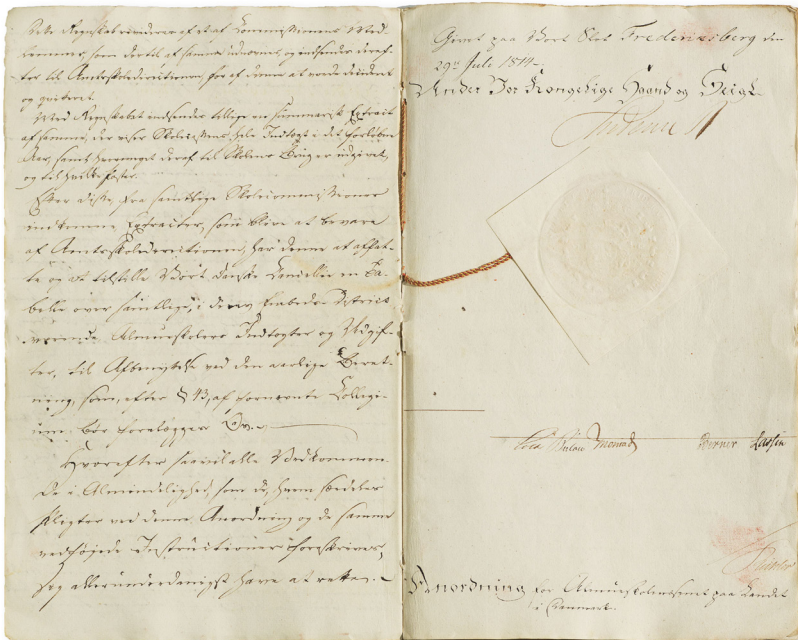 Dette Regnskab revideres af et af Commissionens Med-
lemmer, som dertil af samme udnævnes, og indsendes deref-
ter til Amtsskoledirectionen, for af denne at vorde decideret
og qvitteret.
Med Regnskabet indsendes tillige en summarisk Extract
af samme, der viser Skolecassens hele Indtægt i det forløbne
Aar, samt hvormeget deraf til Skolens Brug er udgivet,
og til hvilke Poster.
Efter disse, fra samtlige Skolecommissioner
indkomne Extracter, som blive at bevare
af Amtsskoledirectionen, har denne at affat-
te og at tilstille Vort danske Cancellie en Ta-
belle over samtlige, i deres Embeds-District
værende Almueskolers Indtægter og Udgif-
ter, til Afbenyttelse ved den aarlige Beret-
ning, som, efter § 43, af fornævnte Collegi-
um bør forelægges Os.
Hvorefter saavel alle Vedkommen-
de i Almindelighed, som de, hvem særdeles
Pligter ved denne Anordning og de samme
vedføjede Instructioner foreskrives,
sig allerunderdanigst have at rette.
Givet paa Vort Slot Frederiksberg den
29de Juli 1814.
Under Vor Kongelige Haand og Seigl.
Frederik R
Bülow Monrad Berner Lassen
Anordning for Almueskolevæsenet paa Landet
i Danmark.